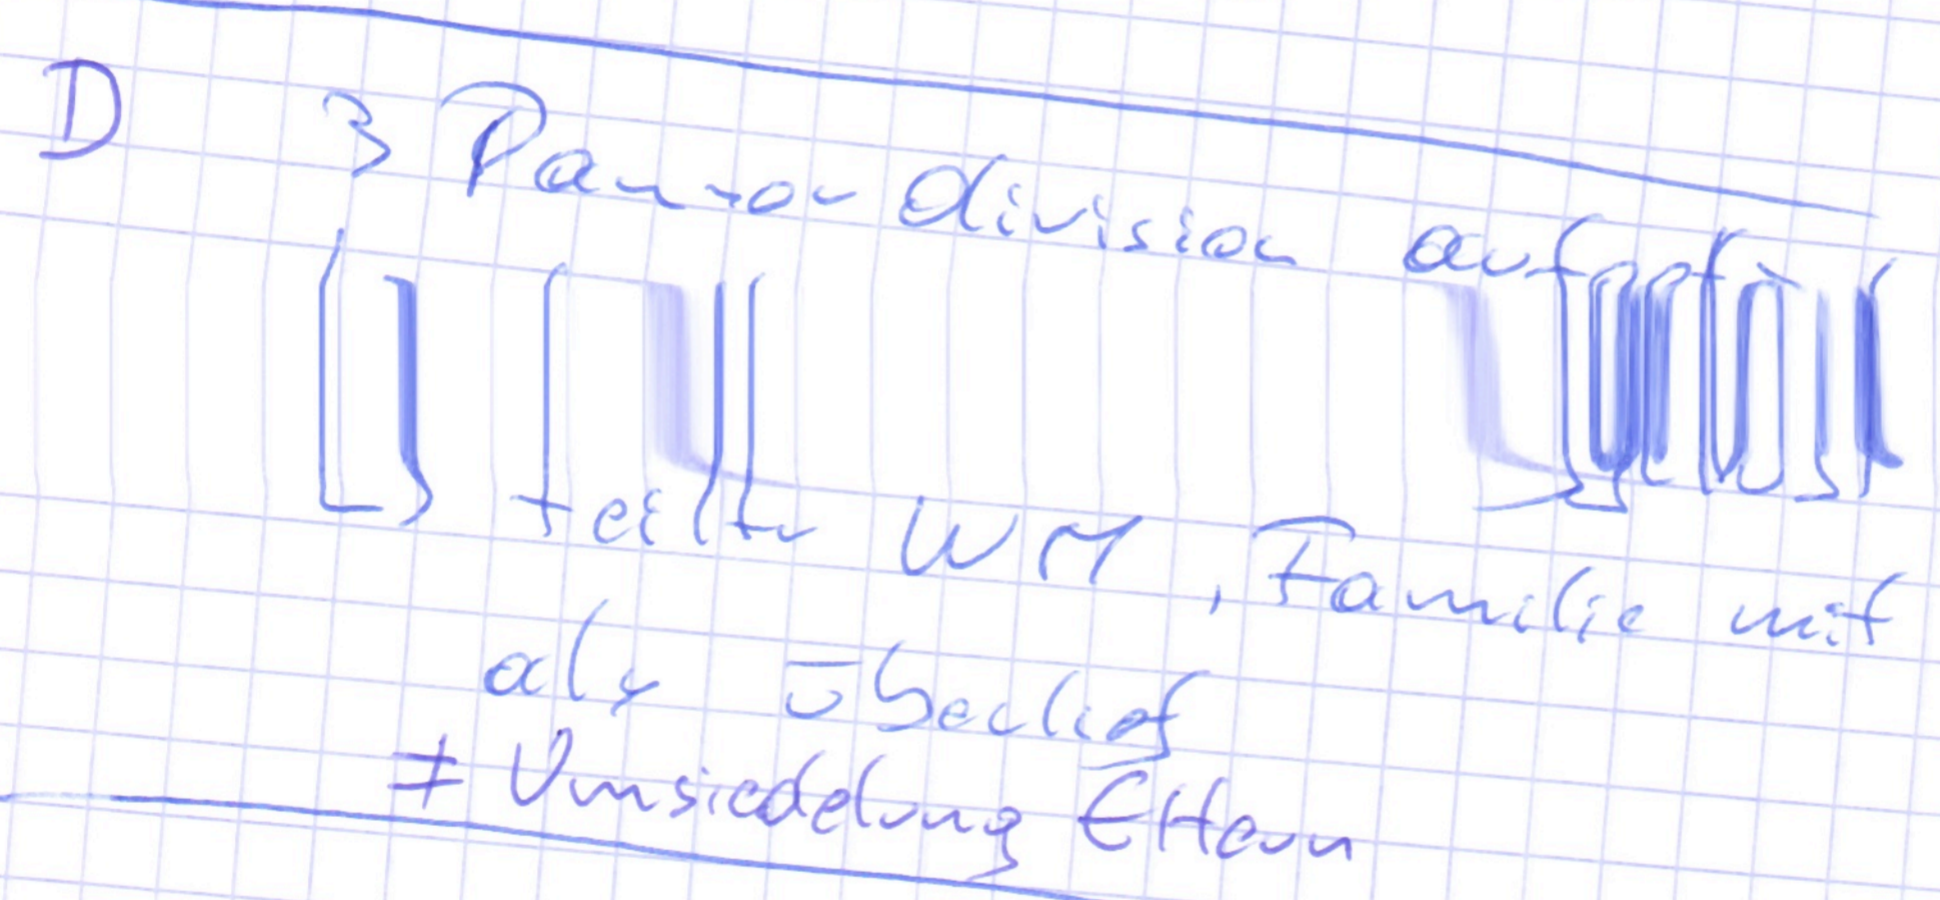 D 3 Panzerdivision aufgelöst
teilte WM, Familie mit
als überlief
≠ Umsiedelung Eltern